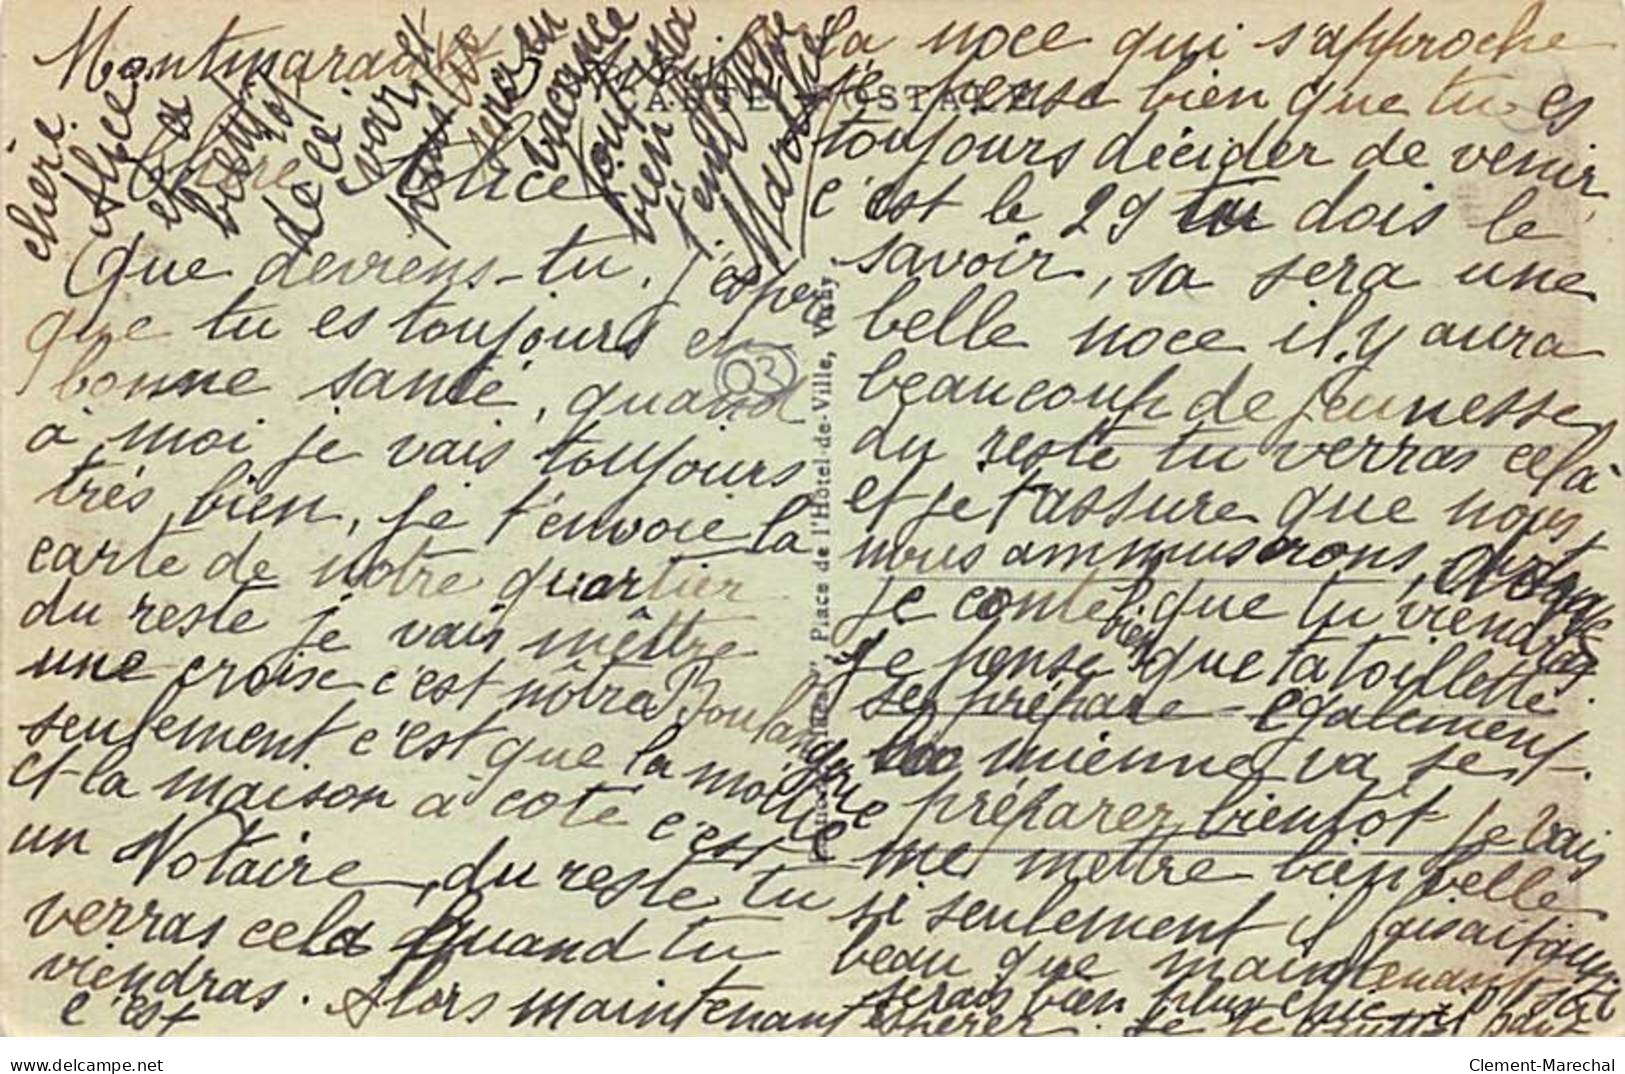 Montmarault
Chère Alice
Que deviens-tu, j'espère
que tu es toujours en
bonne santé, quand
à moi je vais toujours
très bien, je t'envoie la
carte de notre quartier
du reste je vais mêttre
une croise c'est nôtre Boulangerie
seulement c'est que la moitié
et la maison à coté c'est
un Notaire, du reste tu
verras cela quand tu
viendras. Alors maintenant
c'est
la noce qui s'approche
je pense bien que tu es
toujours décider de venir,
c'est le 29 tu dois le
savoir, sa sera une
belle noce il y aura
beaucoup de jeunesse
du reste tu verras celà
et je t'assure que nous
nous ammuserons,
je conte bien que tu viendras
je pense que ta toillette
se prépare également
la mienne va se
préparer bientôt je vais
me mettre bien belle
si seulement il faisait aussi
beau que maintenant sa
serais bien heureux
espérer. Je te
chère
Alice
et a
bientôt
de ce
voir et
bien
t'en
CARTE POSTALE
Place de l'Hôtel-de-Ville, Vichy
03
https://www.delcampe.net
Clement-Marechal